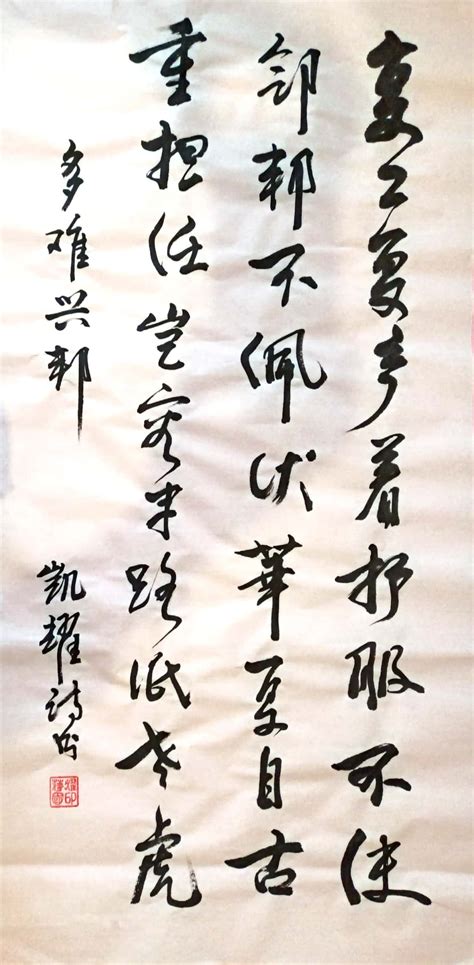 复工复产着护服不使
邻邦不佩伏華夏自古
重担任岂容半路纸老虎
多难兴邦
凯耀诗书